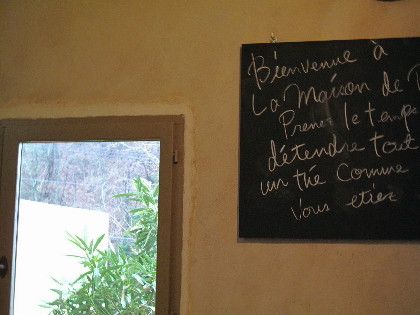 Bienvenue à
La Maison de
Prenez le temps
détendre tout
un thé comme
vous etiez